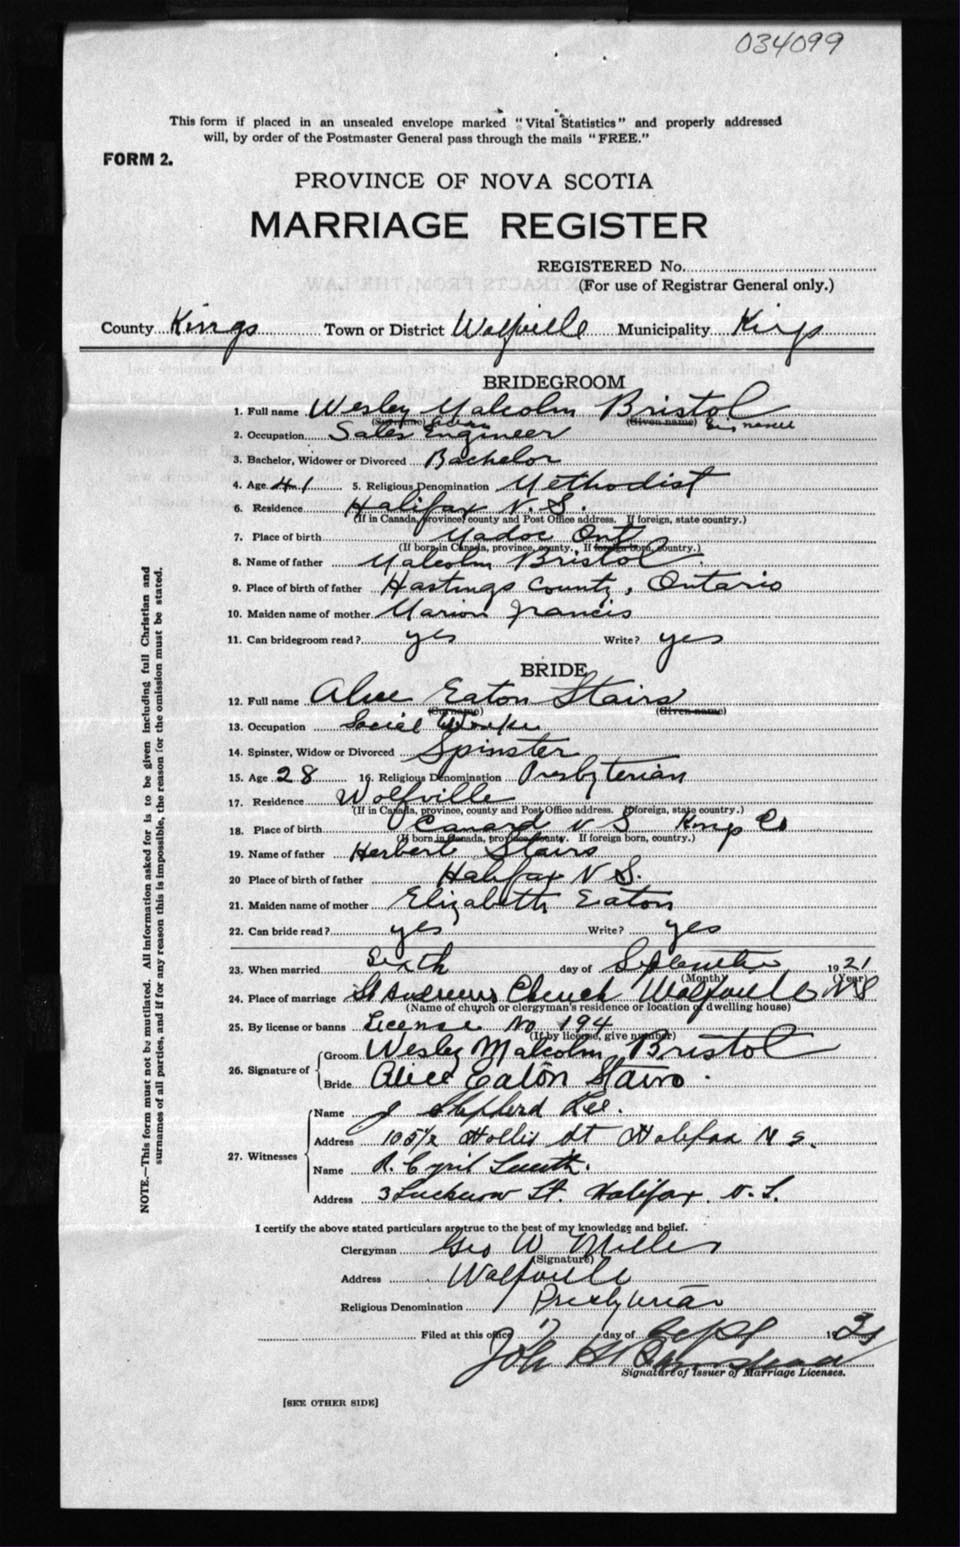 034099
This form if placed in an unsealed envelope marked "Vital Statistics" and properly addressed
will, by order of the Postmaster General pass through the mails "FREE."
FORM 2.
PROVINCE OF NOVA SCOTIA
MARRIAGE REGISTER
REGISTERED No.
(For use of Registrar General only.)
County Kings Town or District Wolfville Municipality Kings
BRIDEGROOM
1. Full name Wesley Malcolm Bristol
(Surname) (Given name) Surname
2. Occupation Sales Engineer
3. Bachelor, Widower or Divorced Bachelor
4. Age 41 5. Religious Denomination Methodist
6. Residence Halifax N.S.
(If in Canada, province, county and Post Office address. If foreign, state country.)
7. Place of birth Madoc Ont
(If born in Canada, province, county., If foreign born, country.)
8. Name of father Malcolm Bristol
9. Place of birth of father Hastings County, Ontario
10. Maiden name of mother Marion Francis
11. Can bridegroom read? yes Write? yes
BRIDE
12. Full name Alice Eaton Stairs
(Surname) (Given name)
13. Occupation Social Worker
14. Spinster, Widow or Divorced Spinster
15. Age 28 16. Religious Denomination Presbyterian
17. Residence Wolfville
(If in Canada, province, county and Post Office address. If foreign, state country.)
18. Place of birth Canard N S Kings Co
(If born in Canada, province, county. If foreign born, country.)
19. Name of father Herbert Stairs
20 Place of birth of father Halifax N S.
21. Maiden name of mother Elizabeth Eaton
22. Can bride read? yes Write? yes
23. When married Sixth day of September 1921
(Month) (Year)
24. Place of marriage St Andrews Church Wolfville NS
(Name of church or clergyman's residence or location of dwelling house)
25. By license or banns License No 194
(If by license, give number)
26. Signature of Groom Wesley Malcolm Bristol
Bride Alice Eaton Stairs.
27. Witnesses
Name J Shepherd Lee.
Address 105½ Hollis St Halifax N S.
Name Cyril Smith.
Address 3 Lucknow St. Halifax. N.S.
I certify the above stated particulars are true to the best of my knowledge and belief.
Clergyman Geo W Miller
(Signature)
Address Wolfville
Religious Denomination Presbyterian
Filed at this office 7 day of Sept 19
Signature of Issuer of Marriage Licenses.
[SEE OTHER SIDE]
NOTE.—This form must not be mutilated. All information asked for is to be given including full Christian and
surnames of all parties, and if for any reason this is impossible, the reason for the omission must be stated.